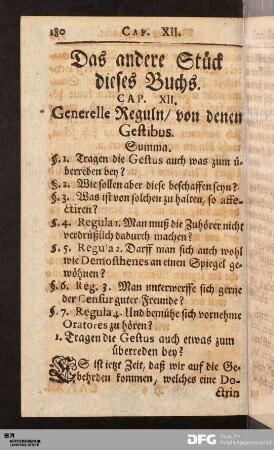 180 CAP. XII.
Das andere Stück
dieses Buchs.
CAP. XII.
Generelle Reguln/ von denen
Gestibus.
Summa.
§. 1. Tragen die Gestus auch was zum ü-
berreden bey?
§. 2. Wie sollen aber diese beschaffen seyn?
§. 3. Was ist von solchen zu halten, so affe-
ctiren?
§. 4. Regula 1. Man muß die Zuhörer nicht
verdrüßlich dadurch machen?
§. 5. Regula 2. Darff man sich auch wohl
wie Demosthenes an einen Spiegel ge-
wöhnen?
§. 6. Reg. 3. Man unterwerffe sich gerne
der Censur guter Freunde?
§. 7. Regula 4. Und bemühe sich vornehme
Oratores zu hören?
1. Tragen die Gestus auch etwas zum
überreden bey?
ES ist ietzt Zeit, daß wir auf die Ge-
behrden kommen, welches eine Do-
ctrin
DFG